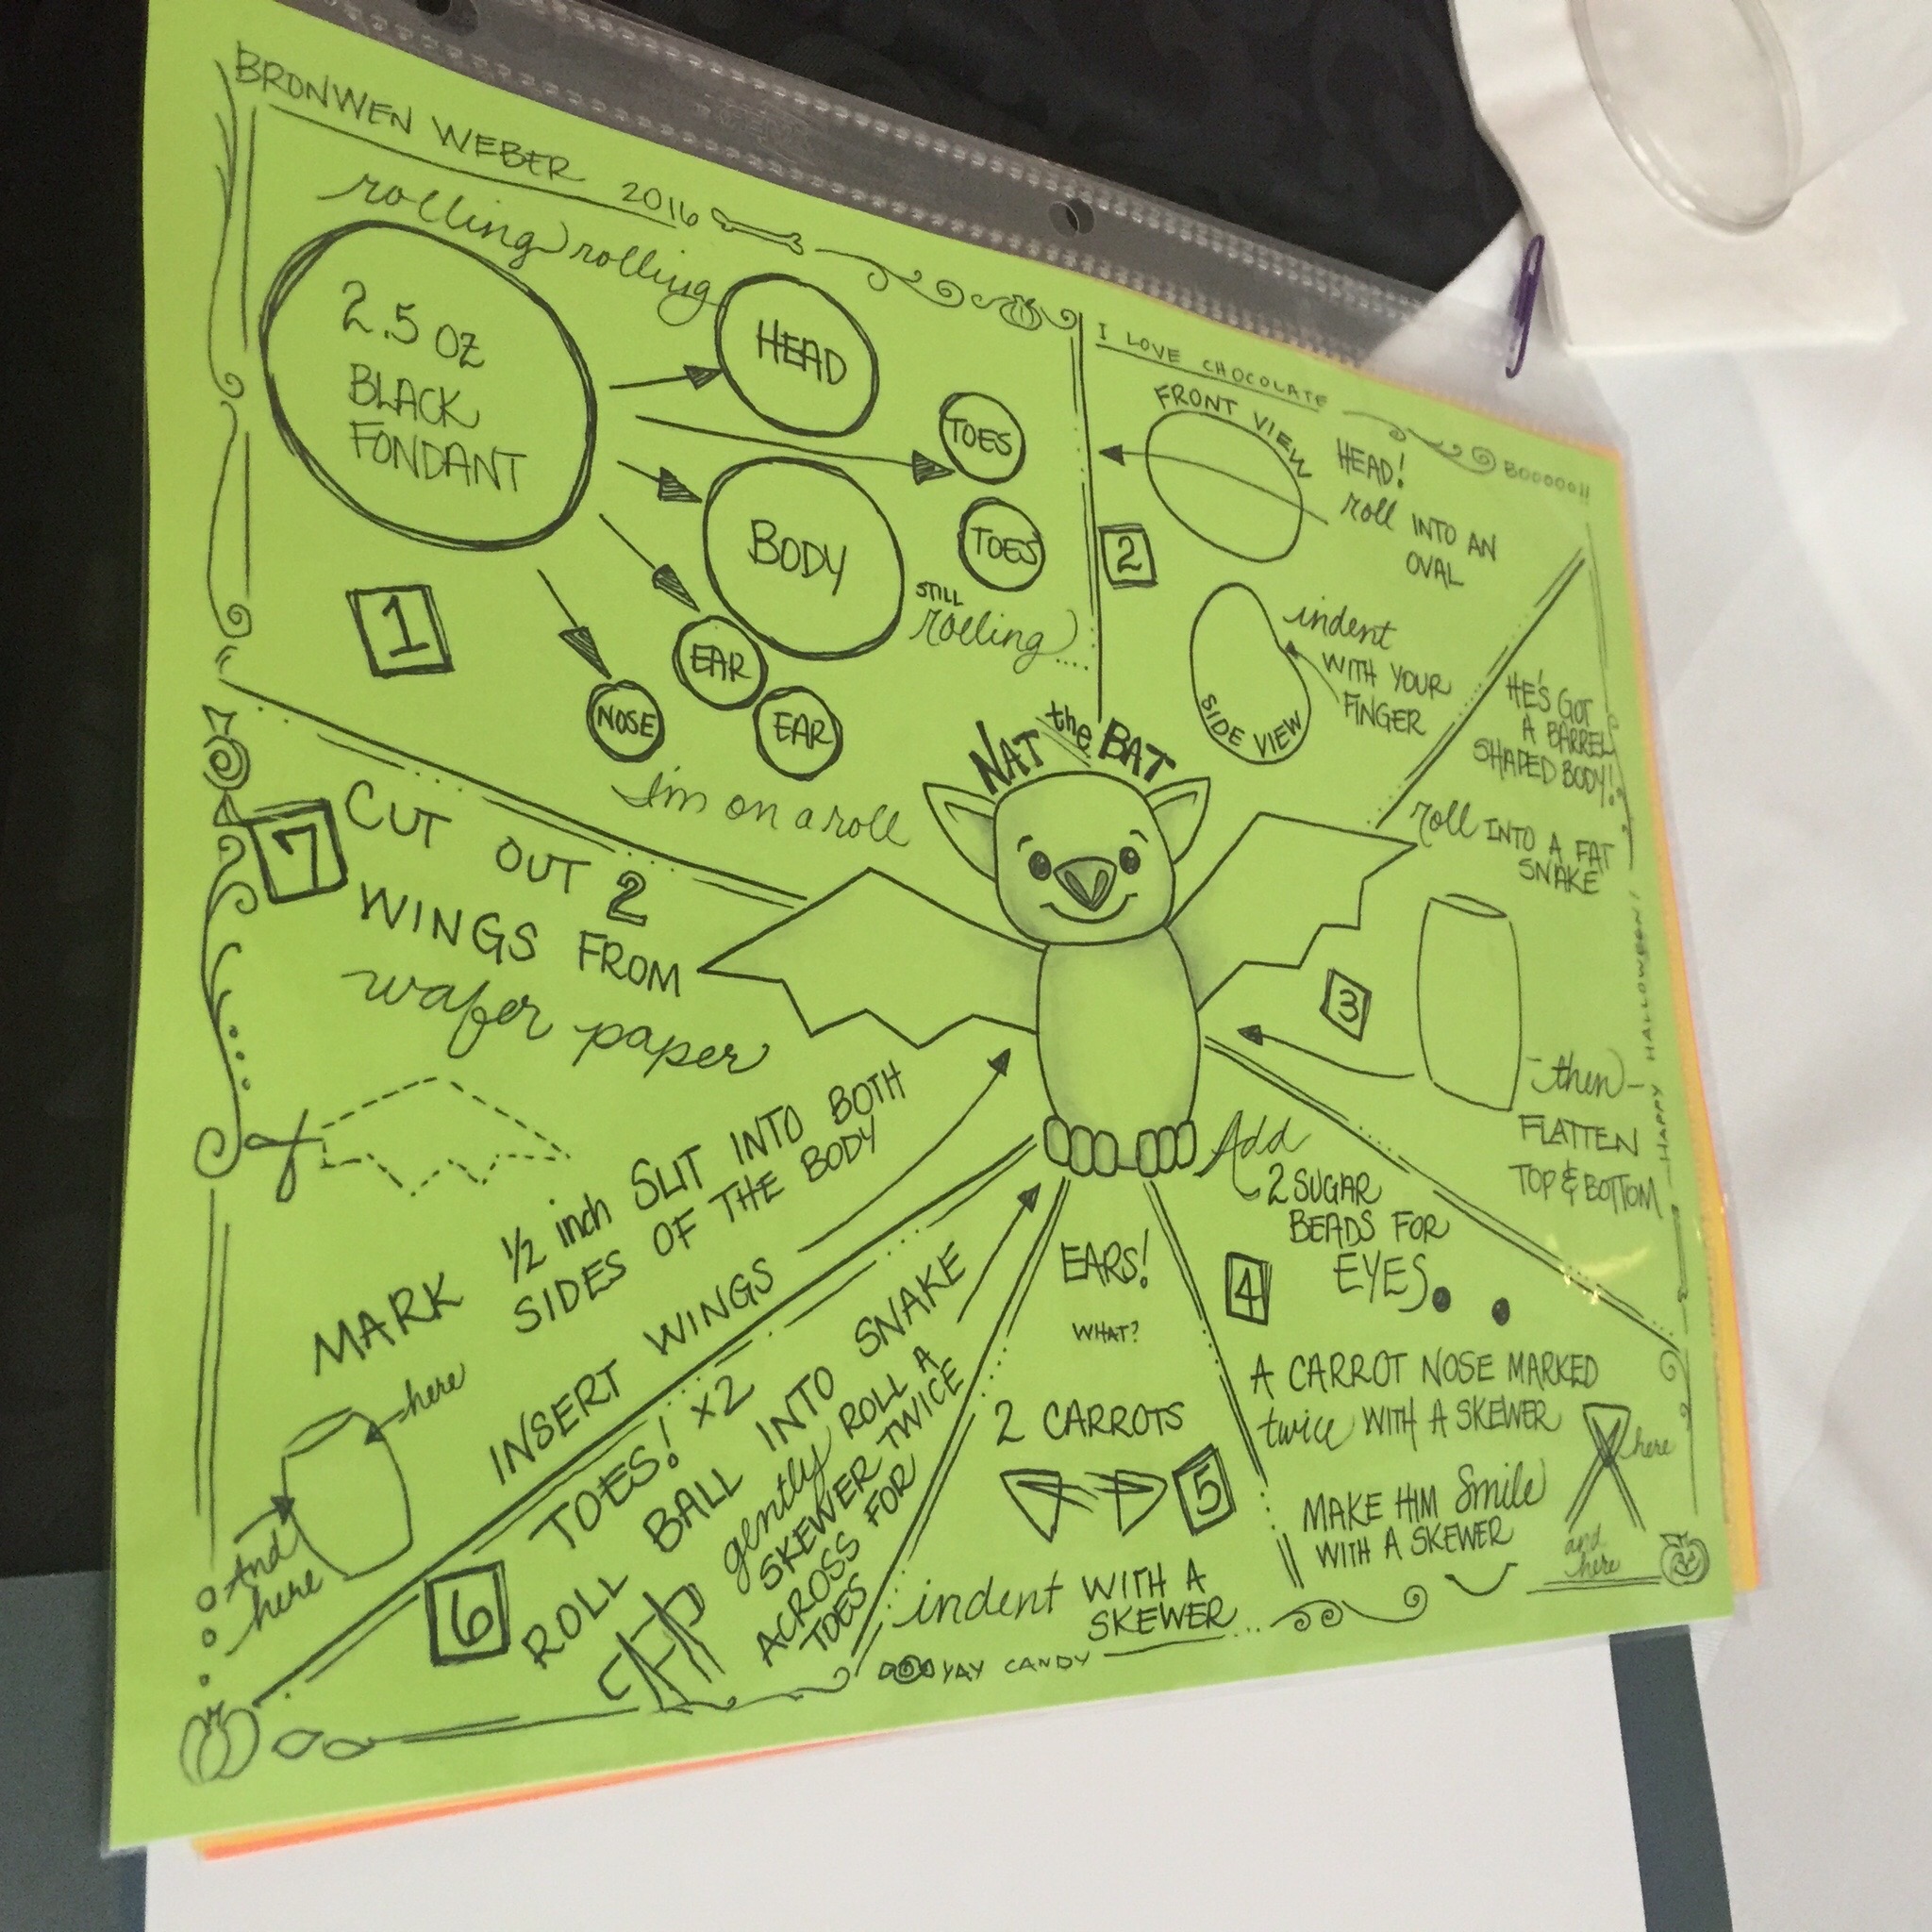 BRONWEN WEBER 2016
rolling rolling
2.5 OZ
BLACK
FONDANT
HEAD
TOES
TOES
BODY
STILL
rolling....
EAR
EAR
NOSE
1
I'm on a roll
I LOVE CHOCOLATE
BOOOOO!!
FRONT VIEW
HEAD!
roll INTO AN
OVAL
2
indent
WITH YOUR
FINGER
SIDE VIEW
NAT the BAT
HE'S GOT
A BARREL
SHAPED BODY!
roll INTO A FAT
SNAKE
3
-then-
FLATTEN
TOP & BOTTOM
HAPPY HALLOWEEN!
Add
2 SUGAR
BEADS FOR
EYES
4
A CARROT NOSE MARKED
twice WITH A SKEWER
here
and
here
MAKE HIM Smile
WITH A SKEWER
EARS!
WHAT?
2 CARROTS
5
indent WITH A
SKEWER...
YAY CANDY
6
TOES! x2
ROLL BALL INTO SNAKE
gently ROLL A
SKEWER TWICE
ACROSS FOR
TOES
7
CUT OUT 2
WINGS FROM
wafer paper
MARK 1/2 inch SLIT INTO BOTH
SIDES OF THE BODY
INSERT WINGS
here
And
here